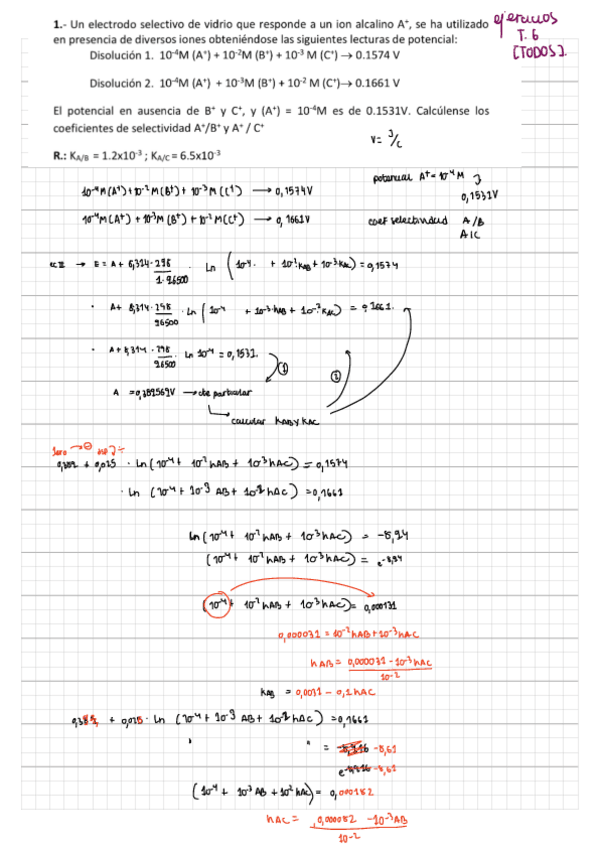 1.- Un electrodo selectivo de vidrio que responde a un ion alcalino A⁺, se ha utilizado
en presencia de diversos iones obteniéndose las siguientes lecturas de potencial:
ejercicios
T. 6
[TODOS].
Disolución 1. 10⁻⁴M (A⁺) + 10⁻²M (B⁺) + 10⁻³ M (C⁺) → 0.1574 V
Disolución 2. 10⁻⁴M (A⁺) + 10⁻³M (B⁺) + 10⁻² M (C⁺)→ 0.1661 V
El potencial en ausencia de B⁺ y C⁺, y (A⁺) = 10⁻⁴M es de 0.1531V. Calcúlense los
coeficientes de selectividad A⁺/B⁺ y A⁺ / C⁺
V= J/C
R.: K_A/B = 1.2x10⁻³ ; K_A/C = 6.5x10⁻³
potencial A⁺ = 10⁻⁴ M
0,1531V
10⁻⁴M(A⁺)+10⁻²M(B⁺)+10⁻³M(C⁺) → 0,1574V
10⁻⁴M(A⁺)+10⁻³M(B⁺)+10⁻²M(C⁺) → 0,1661V
coef selectividad A/B
A/C
→ E = A + 8,314·298/1·96500 · Ln (10⁻⁴ + 10⁻²KAB + 10⁻³KAC) = 0,1574
· A+ 8,314·298/96500 · Ln (10⁻⁴ + 10⁻³·KAB + 10⁻²KAC) = 0,1661.
· A+8,314·298/96500 · Ln 10⁻⁴ = 0,1531.
(1)
(2)
A = 0,389569V → cte particular
calcular KAB y KAC
0,389 + 0,025 · Ln(10⁻⁴+ 10⁻²KAB + 10⁻³KAC) = 0,1574
· Ln (10⁻⁴ + 10⁻³ AB + 10⁻² KAC) = 0,1661
Ln(10⁻⁴+ 10⁻²KAB + 10⁻³KAC) = -8,94
(10⁻⁴+ 10⁻²KAB + 10⁻³KAC) = e⁻⁸'⁹⁴
(10⁻⁴+ 10⁻²KAB + 10⁻³KAC) = 0,000131
0,000031 = 10⁻²KAB+10⁻³KAC
KAB = 0,000031 - 10⁻³KAC
10⁻²
KAB = 0,0031 - 0,1KAC
+ 0,025 · Ln (10⁻⁴ + 10⁻³ AB + 10⁻² KAC) = 0,1661
" = -8,61
-8,61
(10⁻⁴ + 10⁻³ AB + 10⁻² KAC) = 0,000182
KAC = 0,000082 - 10⁻³AB
10⁻²